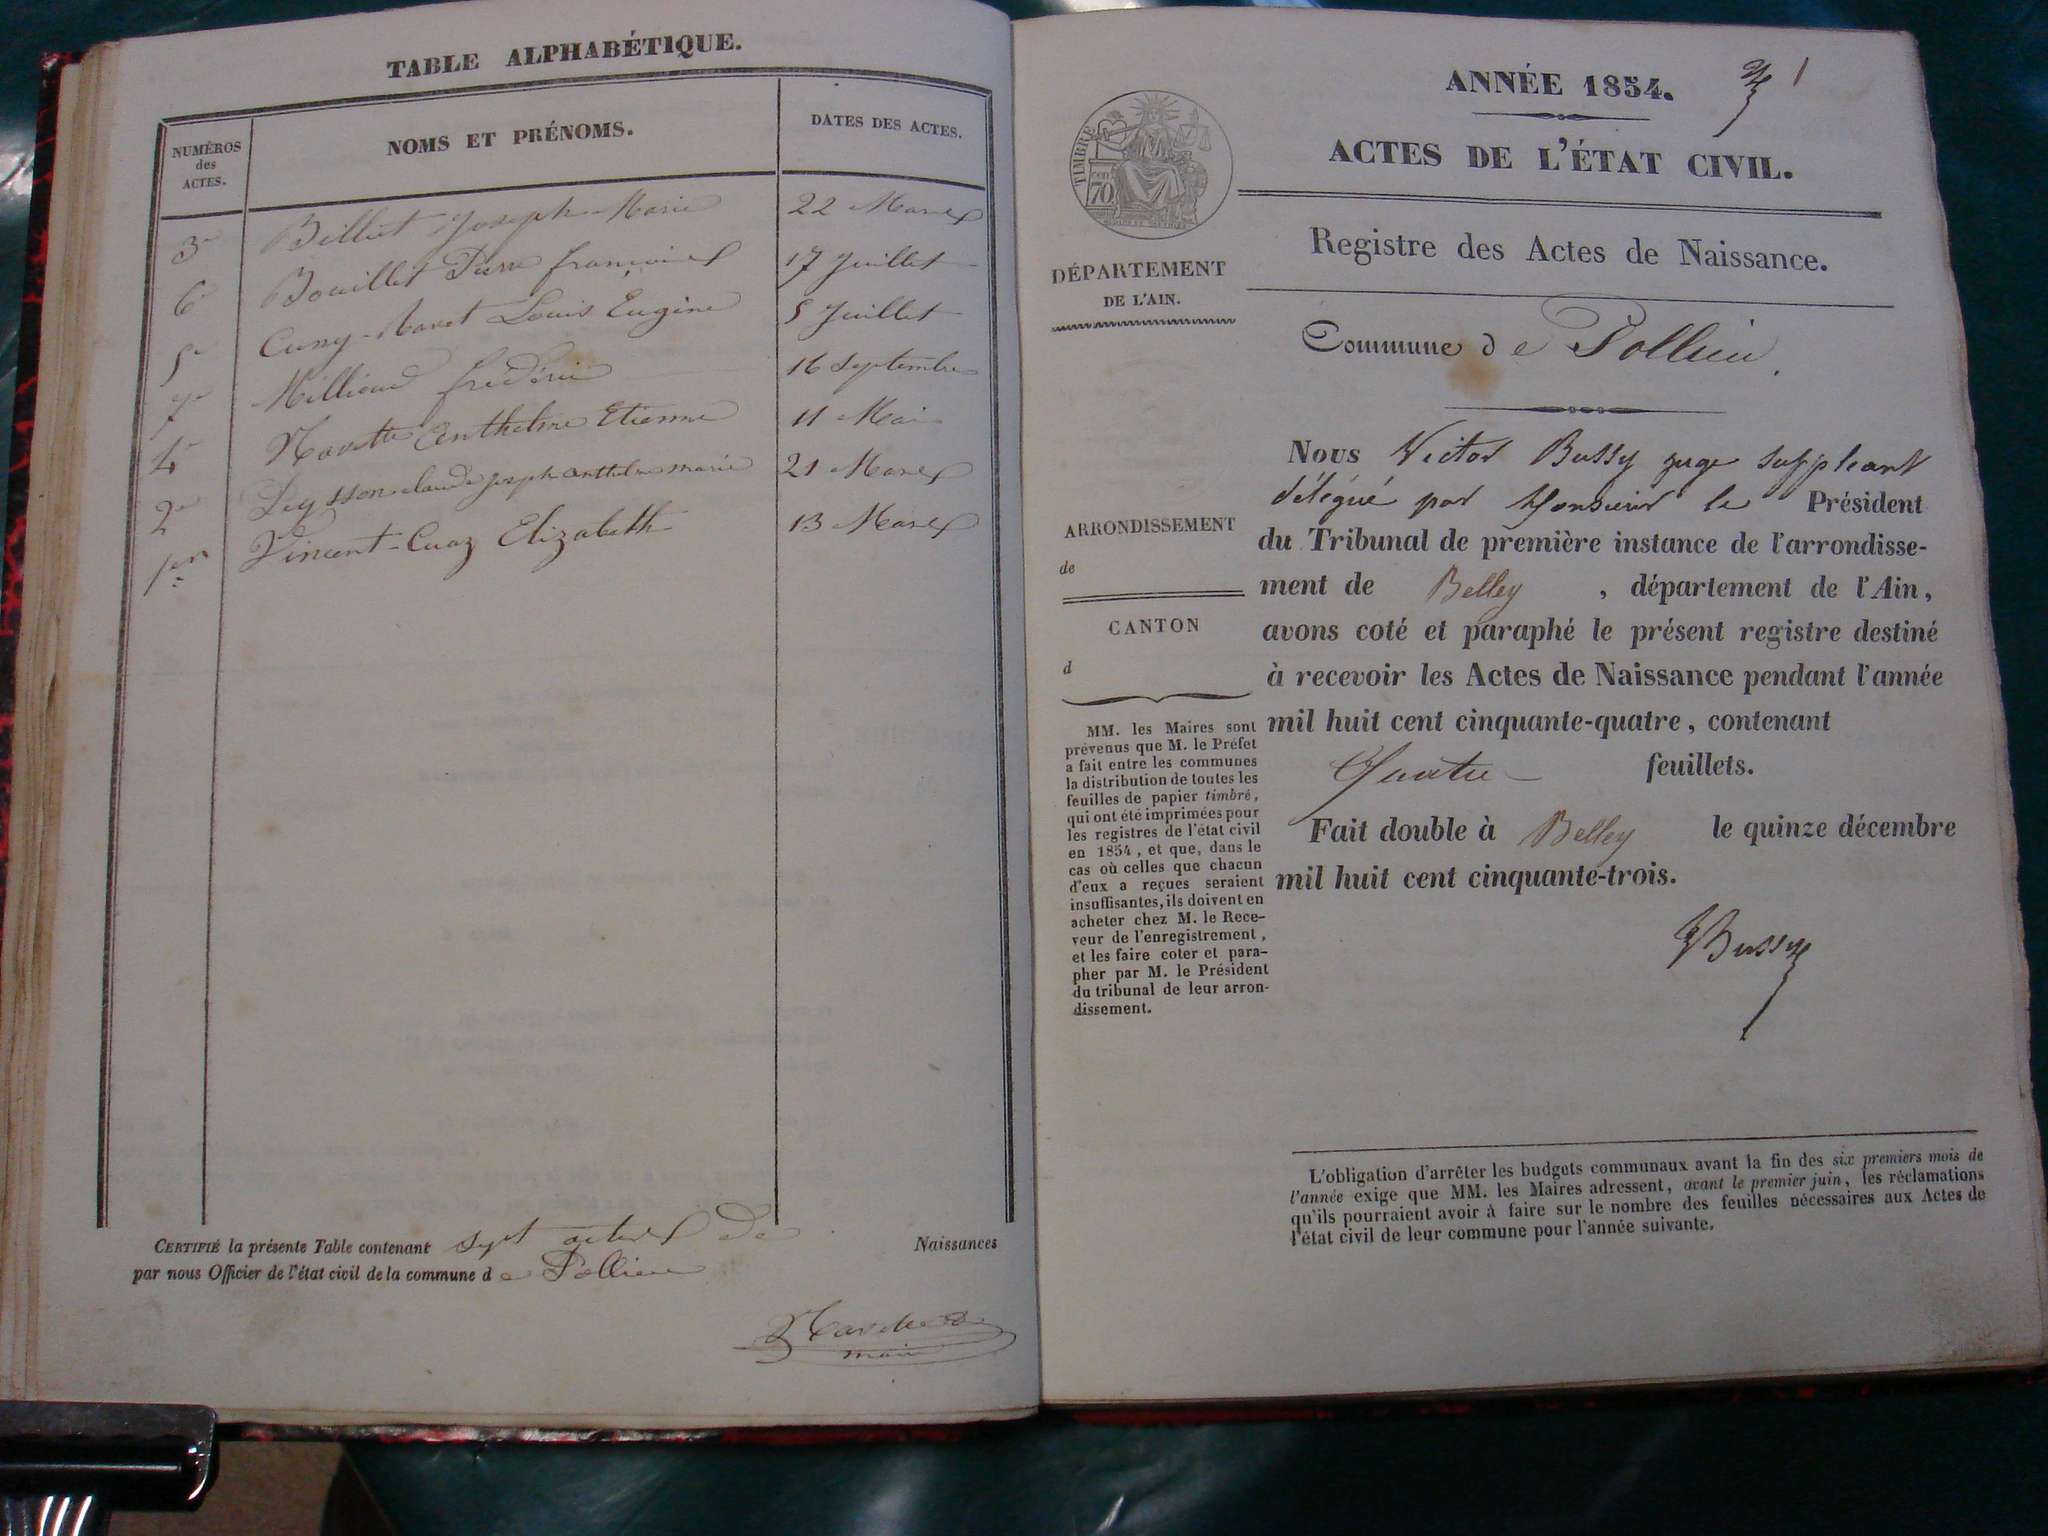 TABLE ALPHABÉTIQUE.
NUMÉROS des ACTES.
NOMS ET PRÉNOMS.
DATES DES ACTES.
3e Billiet Joseph-Marie 22 Mars
6e Bouillet Pierre françois 17 Juillet
5e Cuny-Ravet Louis Eugène 5 Juillet
7e Milliand frédéric 16 Septembre
4e Navette Anthelme Etienne 11 Mai
2e Peysson claude joseph anthelme marie 21 Mars
1er Vincent-Cuaz Elizabeth 13 Mars
CERTIFIÉ la présente Table contenant sept actes de Naissances
par nous Officier de l'état civil de la commune de Pollieu
maire
ANNÉE 1854.
1
ACTES DE L'ÉTAT CIVIL.
TIMBRE
70
Registre des Actes de Naissance.
DÉPARTEMENT
DE L'AIN.
Commune de Pollieu.
Nous Victor Bussy juge suppleant
délégué par Monsieur le Président
du Tribunal de première instance de l'arrondisse-
ment de Belley, département de l'Ain,
avons coté et paraphé le présent registre destiné
à recevoir les Actes de Naissance pendant l'année
mil huit cent cinquante-quatre, contenant
Quatre feuillets.
Fait double à Belley le quinze décembre
mil huit cent cinquante-trois.
VBussy
ARRONDISSEMENT
de
CANTON
d
MM. les Maires sont
prévenus que M. le Préfet
a fait entre les communes
la distribution de toutes les
feuilles de papier timbré,
qui ont été imprimées pour
les registres de l'état civil
en 1854, et que, dans le
cas où celles que chacun
d'eux a reçues seraient
insuffisantes, ils doivent en
acheter chez M. le Rece-
veur de l'enregistrement,
et les faire coter et para-
pher par M. le Président
du tribunal de leur arron-
dissement.
L'obligation d'arrêter les budgets communaux avant la fin des six premiers mois de
l'année exige que MM. les Maires adressent, avant le premier juin, les réclamations
qu'ils pourraient avoir à faire sur le nombre des feuilles nécessaires aux Actes de
l'état civil de leur commune pour l'année suivante.